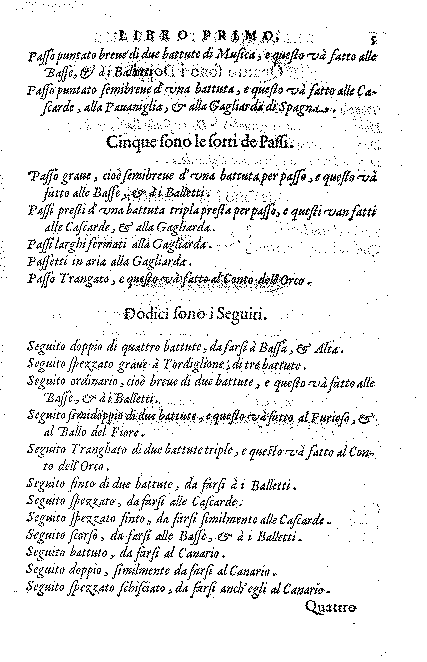 LIBRO PRIMO. 5
Passo puntato breue di due battute di Musica, e questo và fatto alle
Basse, & à i Balletti.
Passo puntato semibreue d'vna battuta, e questo và fatto alle Ca-
scarde, alla Pauaniglia, & alla Gagliarda di Spagna.
Cinque sono le sorti de Passi.
Passo graue, cioè semibreue d'vna battuta per passo, e questo và
fatto alle Basse, & à i Balletti.
Passi presti d'vna battuta tripla presta per passo, e questi van fatti
alle Cascarde, & alla Gagliarda.
Passi larghi fermati alla Gagliarda.
Passetti in aria alla Gagliarda.
Passo Trangato, e questo và fatto al Conto dell'Orco.
Dodici sono i Seguiti.
Seguito doppio di quattro battute, da farsi à Bassa, & Alta.
Seguito spezzato graue à Tordiglione, di tre battute.
Seguito ordinario, cioè breue di due battute, e questo và fatto alle
Basse, & à i Balletti.
Seguito semidoppio di due battute, e questo và fatto al Furioso, &
al Ballo del Fiore.
Seguito Trangato di due battute triple, e questo và fatto al Con-
to dell'Orco.
Seguito finto di due battute, da farsi à i Balletti.
Seguito spezzato, da farsi alle Cascarde.
Seguito spezzato finto, da farsi similmente alle Cascarde.
Seguito scorso, da farsi alle Basse, & à i Balletti.
Seguito battuto, da farsi al Canario.
Seguito doppio, similmente da farsi al Canario.
Seguito spezzato schisciato, da farsi anch'egli al Canario.
Quattro